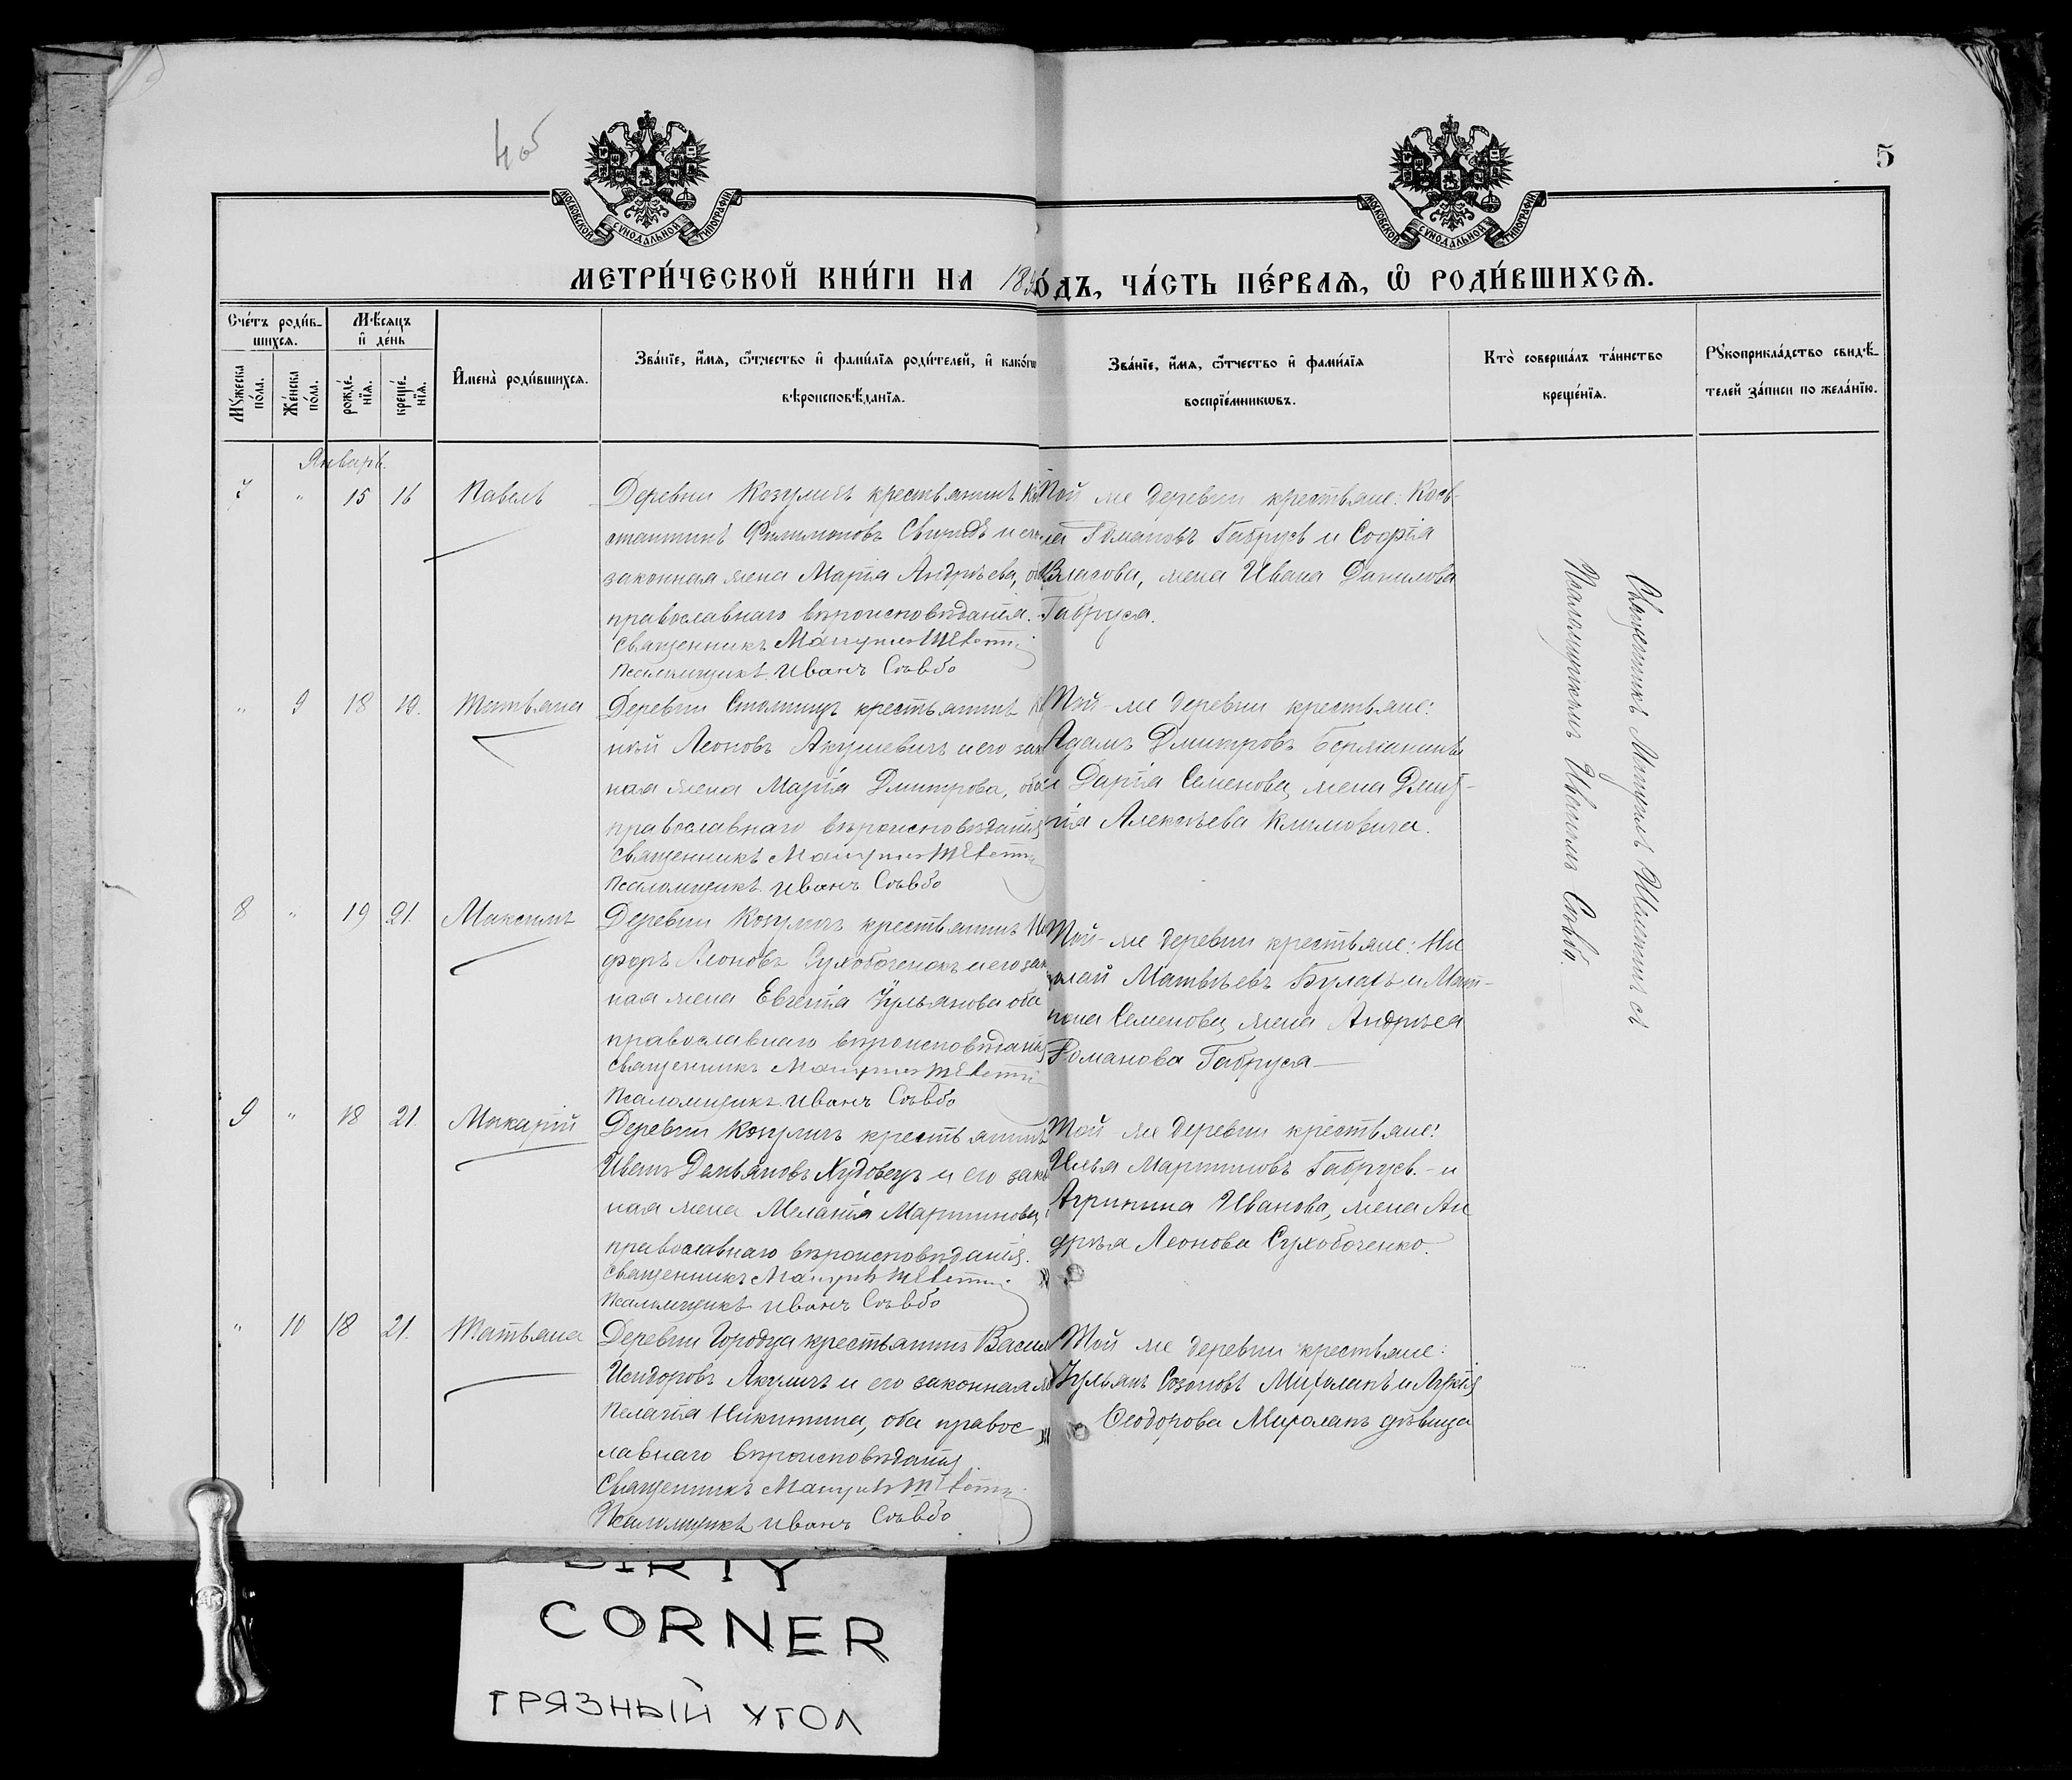 5
МОСКОВСКОЙ СѴНОДАЛЬНОЙ ТИПОГРАФІИ
МОСКОВСКОЙ СѴНОДАЛЬНОЙ ТИПОГРАФІИ
МЕТРИ́ЧЕСКОЙ КНИ́ГИ НА 18
О́ДЪ, ЧА́СТЬ ПЕ́РВАѦ, Ѡ҆ РОДИ́ВШИХСѦ.
Сче́тъ роди́в-
шихся.
Мѣ́сяцъ
и҆ де́нь
Му́жеска по́ла.
Же́нска по́ла.
рожде́-
нїѧ.
креще́-
нїѧ.
И҆мена̀ роди́вшихсѧ.
Зва́нїе, и҆́мѧ, ѻ҆́тчество и҆ фами́лїѧ роди́телей, и҆ како́гѡ
вѣроисповѣ́данїѧ.
Зва́нїе, и҆́мѧ, ѻ҆́тчество и҆ фами́лїѧ
воспрїе́мникѡвъ.
Кто̀ соверша́лъ та́инство
креще́нїѧ.
Рꙋкоприкла́дство свидѣ́-
телей за́писи по жела́нїю.
Январь.
7 " 15 16 Павелъ
Деревни Козуличъ крестьянинъ
стантинъ Филимоновъ и его
законная жена Марія Андреева,
православнаго вѣроисповѣданія.
Священникъ
Псаломщикъ Иванъ Сѣвбо
Той же деревни крестьяне: Кось-
ма Романовъ Габрусь и Софія
Власова, жена Ивана Данилова
Габруся.
" 9 18 19. Татьяна
Деревни Столпищъ крестьянинъ
Леоновъ Акушевичъ и его зак
ная жена Марія Дмитрова, оба
православнаго вѣроисповѣданія
Священникъ
Псаломщикъ Иванъ Сѣвбо
Той-же деревни крестьяне:
Адамъ Дмитровъ
и Дарія Семенова, жена Дмит-
рія Алексѣева Климовича.
8 " 19 21. Максимъ
Деревни Козуличъ крестьянинъ Ни
форъ Леоновъ Сухобоченокъ и его зак
ная жена Евгенія Ульянова оба
православнаго вѣроисповѣданія
Священникъ
Псаломщикъ Иванъ Сѣвбо
Той-же деревни крестьяне: Ни
колай Матвѣевъ Булахъ и Мат-
рона Семенова, жена Андрея
Романова Габруся
9 " 18 21 Макарій
Деревни Козуличъ крестьянинъ
Иванъ Демьяновъ Худовецъ и его зако
ная жена Меланія Мартинова,
православнаго вѣроисповѣданія.
Священникъ
Псаломщикъ Иванъ Сѣвбо
Той же деревни крестьяне:
Илья Мартиновъ Габрусь. - и
Агрипина Иванова, жена Ан
дрея Леонова Сухобоченко.
" 10 18 21. Татьяна
Деревни Городца крестьянинъ Васил
Исидоровъ Акуличъ и его законная же
Пелагія Никитина, оба правос
лавнаго вѣроисповѣданія
Священникъ
Псаломщикъ Иванъ Сѣвбо
Той же деревни крестьяне:
Ульянъ Созоновъ Михоланъ и Лукія
Ѳеодорова Михоланъ дѣвица
Священникъ Мануилъ съ
Псаломщикомъ Иваномъ Сѣвбо.
DIRTY
CORNER
ГРЯЗНЫЙ УГОЛ